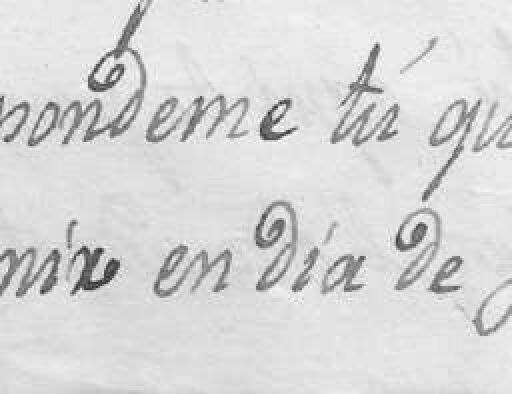 pondeme tú qu
nix en día de